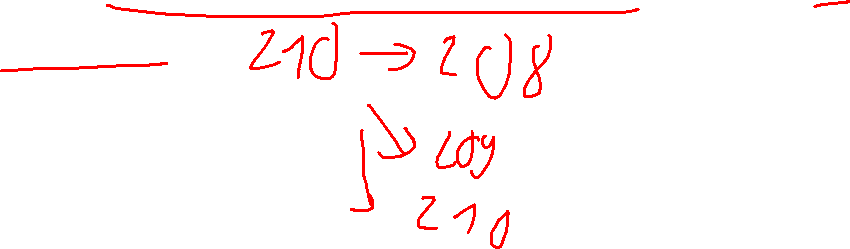 210 → 208
209
210